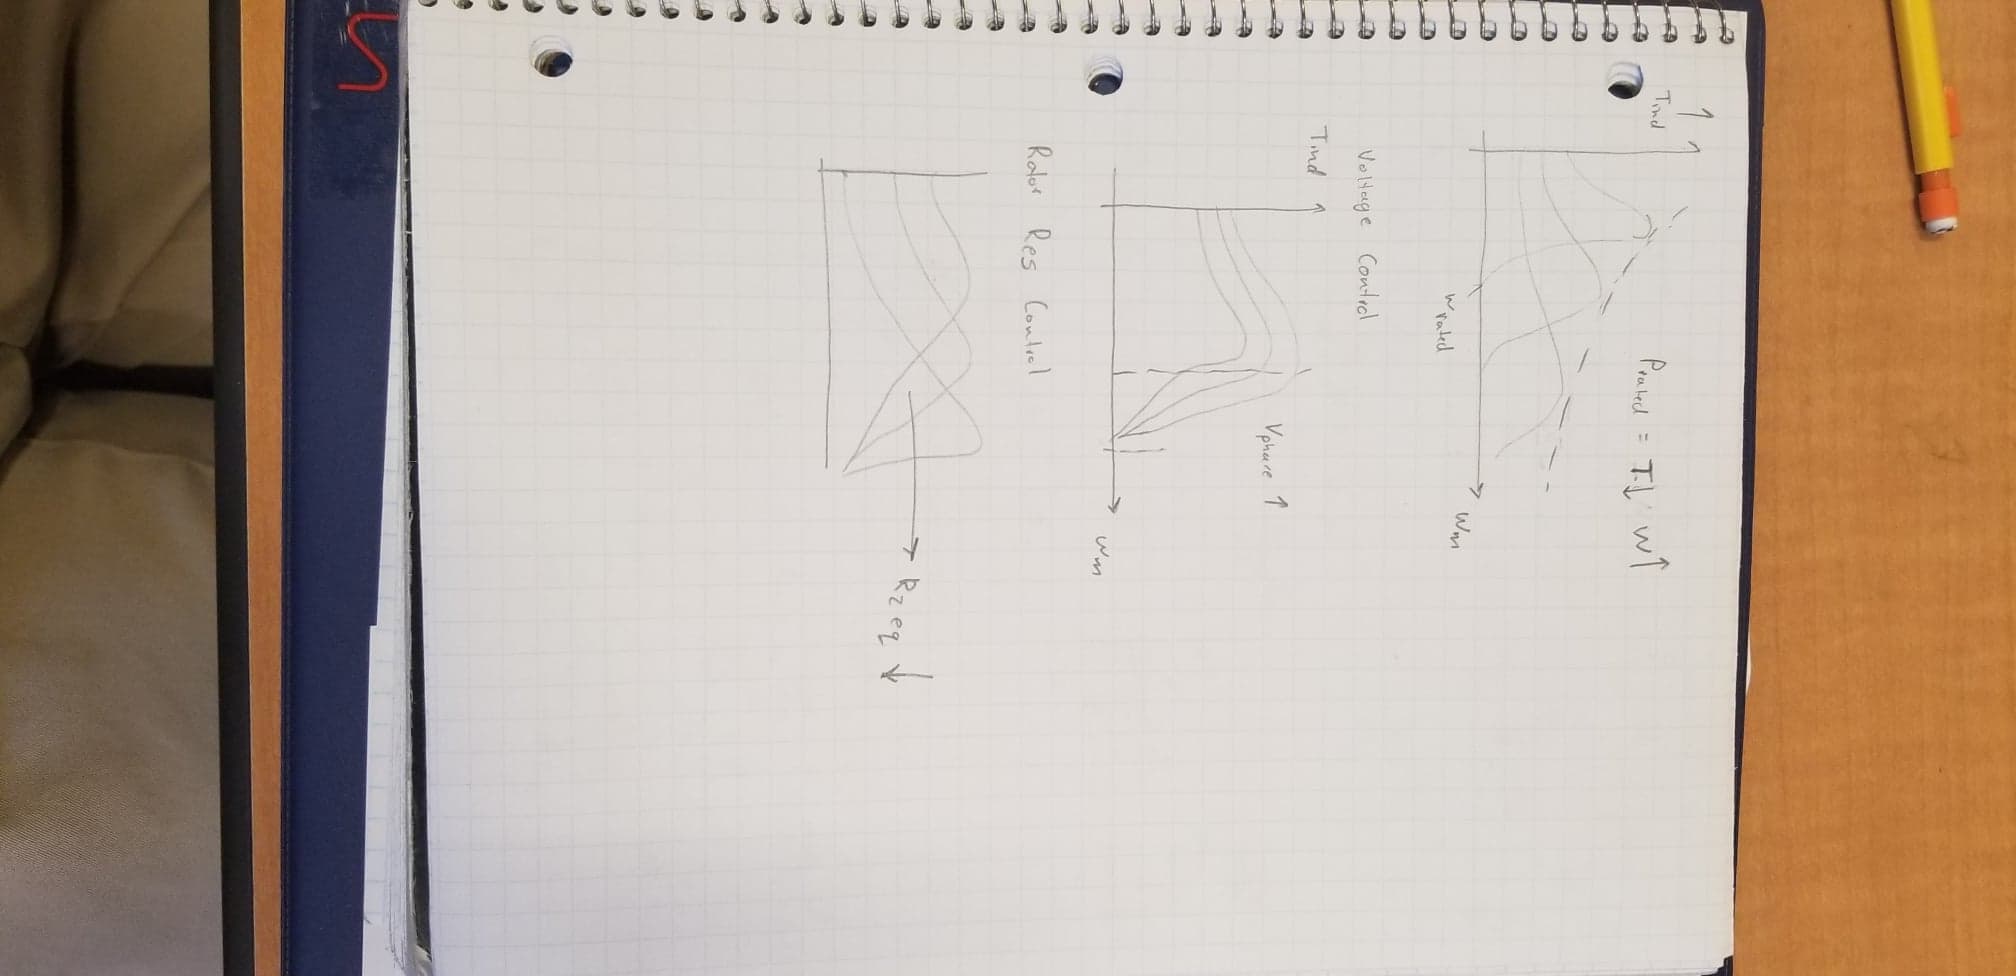 ↑
Tind
Prated = T↓ W↑
Wm
Wrated
Voltage Control
Tind
Vphase ↑
Wm
Rotor Res Control
R2eq ↓